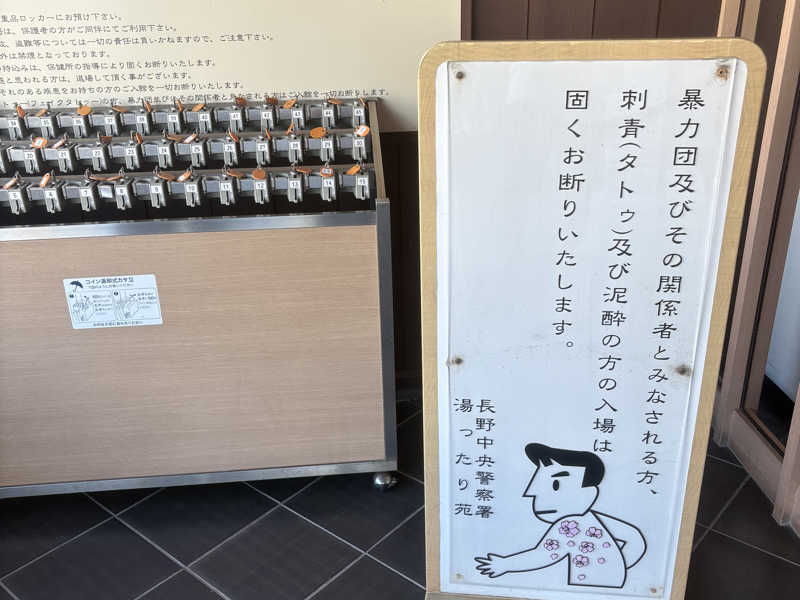 重品ロッカーにお預け下さい。
は、保護者の方がご同伴にてご利用下さい。
盗難等については一切の責任は負いかねますので、ご注意下さい。
外は禁煙となっております。
持込みは、保健所の指導により固くお断りいたします。
と思われる方は、退場して頂く事がございます。
それのある疾患をお持ちの方のご入館を一切お断りいたします。
コイン返却式カサ立
暴力団及びその関係者とみなされる方、
刺青(タトゥ)及び泥酔の方の入場は
固くお断りいたします。
長野中央警察署
湯ったり苑